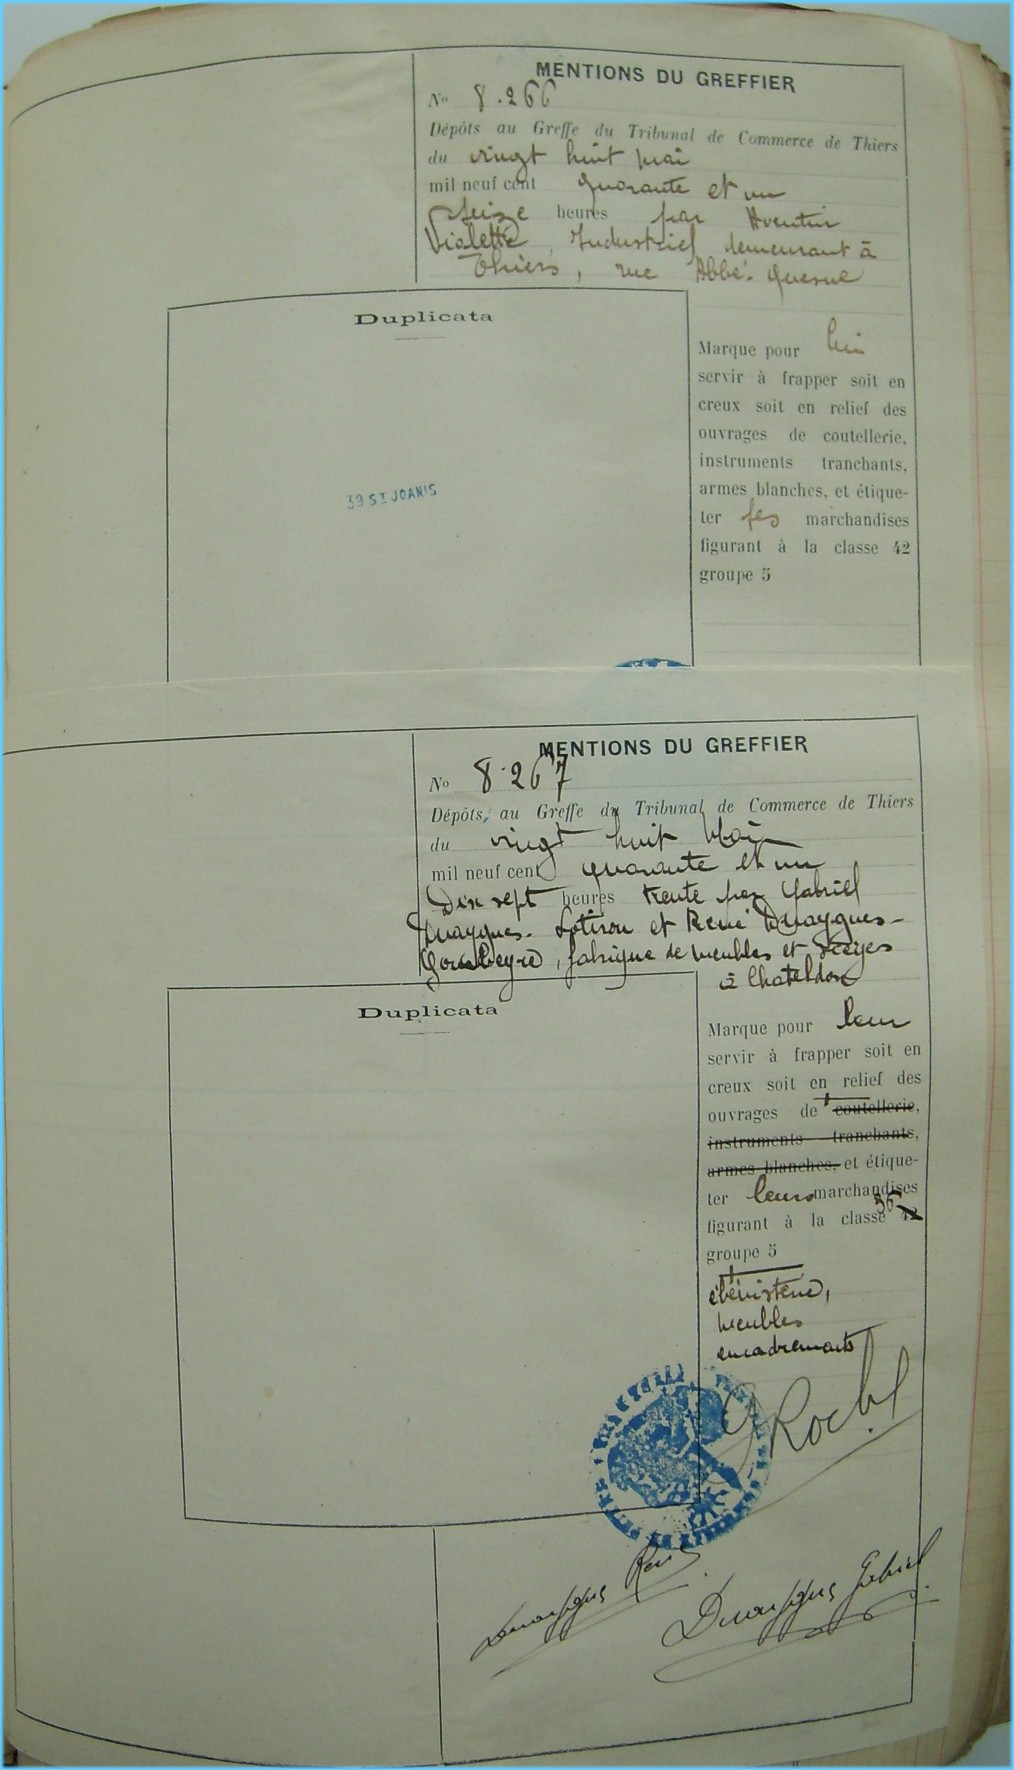 MENTIONS DU GREFFIER
No 8.266
Dépôts au Greffe du Tribunal de Commerce de Thiers
du vingt huit mai
mil neuf cent quarante et un
seize heures par Aventin
Violette, Industriel demeurant à
Thiers, rue Abbé. Quesne
Duplicata
39 ST JOANIS
Marque pour lui
servir à frapper soit en
creux soit en relief des
ouvrages de coutellerie,
instruments tranchants,
armes blanches, et étique-
ter ses marchandises
figurant à la classe 42
groupe 5
MENTIONS DU GREFFIER
No 8.267
Dépôts au Greffe du Tribunal de Commerce de Thiers
du vingt huit Mai
mil neuf cent quarante et un
Dix sept heures trente par Gabriel
et René
fabrique de meubles et sièges
à Chateldon
Duplicata
Marque pour leur
servir à frapper soit en
creux soit en relief des
ouvrages de coutellerie,
instruments tranchants,
armes blanches, et étique-
ter leurs marchandises
36
figurant à la classe 42
groupe 5
ébénisterie,
meubles
encadrements